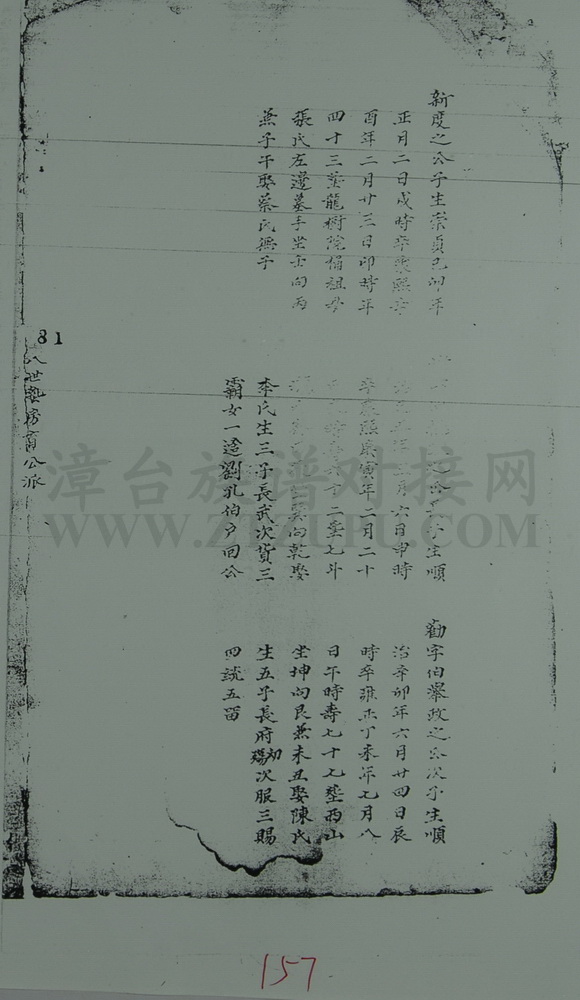 新度之公子生崇貞己卯年
正月二日戌時卒康熙辛
酉年二月廿三日卯時年
四十三塟龍樹院債祖母
張氏左邊墓手坐壬向丙
兼子午娶蔡氏無子
之公子生順
月六日申時
卒康熙庚寅年二月二十
十二塟七斗
向乾娶
李氏生三子長武次貨三
霸女一適劉孔伯戶回公
勸字伯舉政之公次子生順
治辛卯年六月廿四日辰
時卒雍正丁未年七月八
日午時壽七十七塟西山
坐坤向艮兼未丑娶陳氏
生五子長府初殤次服三賜
四統五畱
81
八世
房
公派
漳台族谱对接网
WWW.ZTZUPU.COM
157